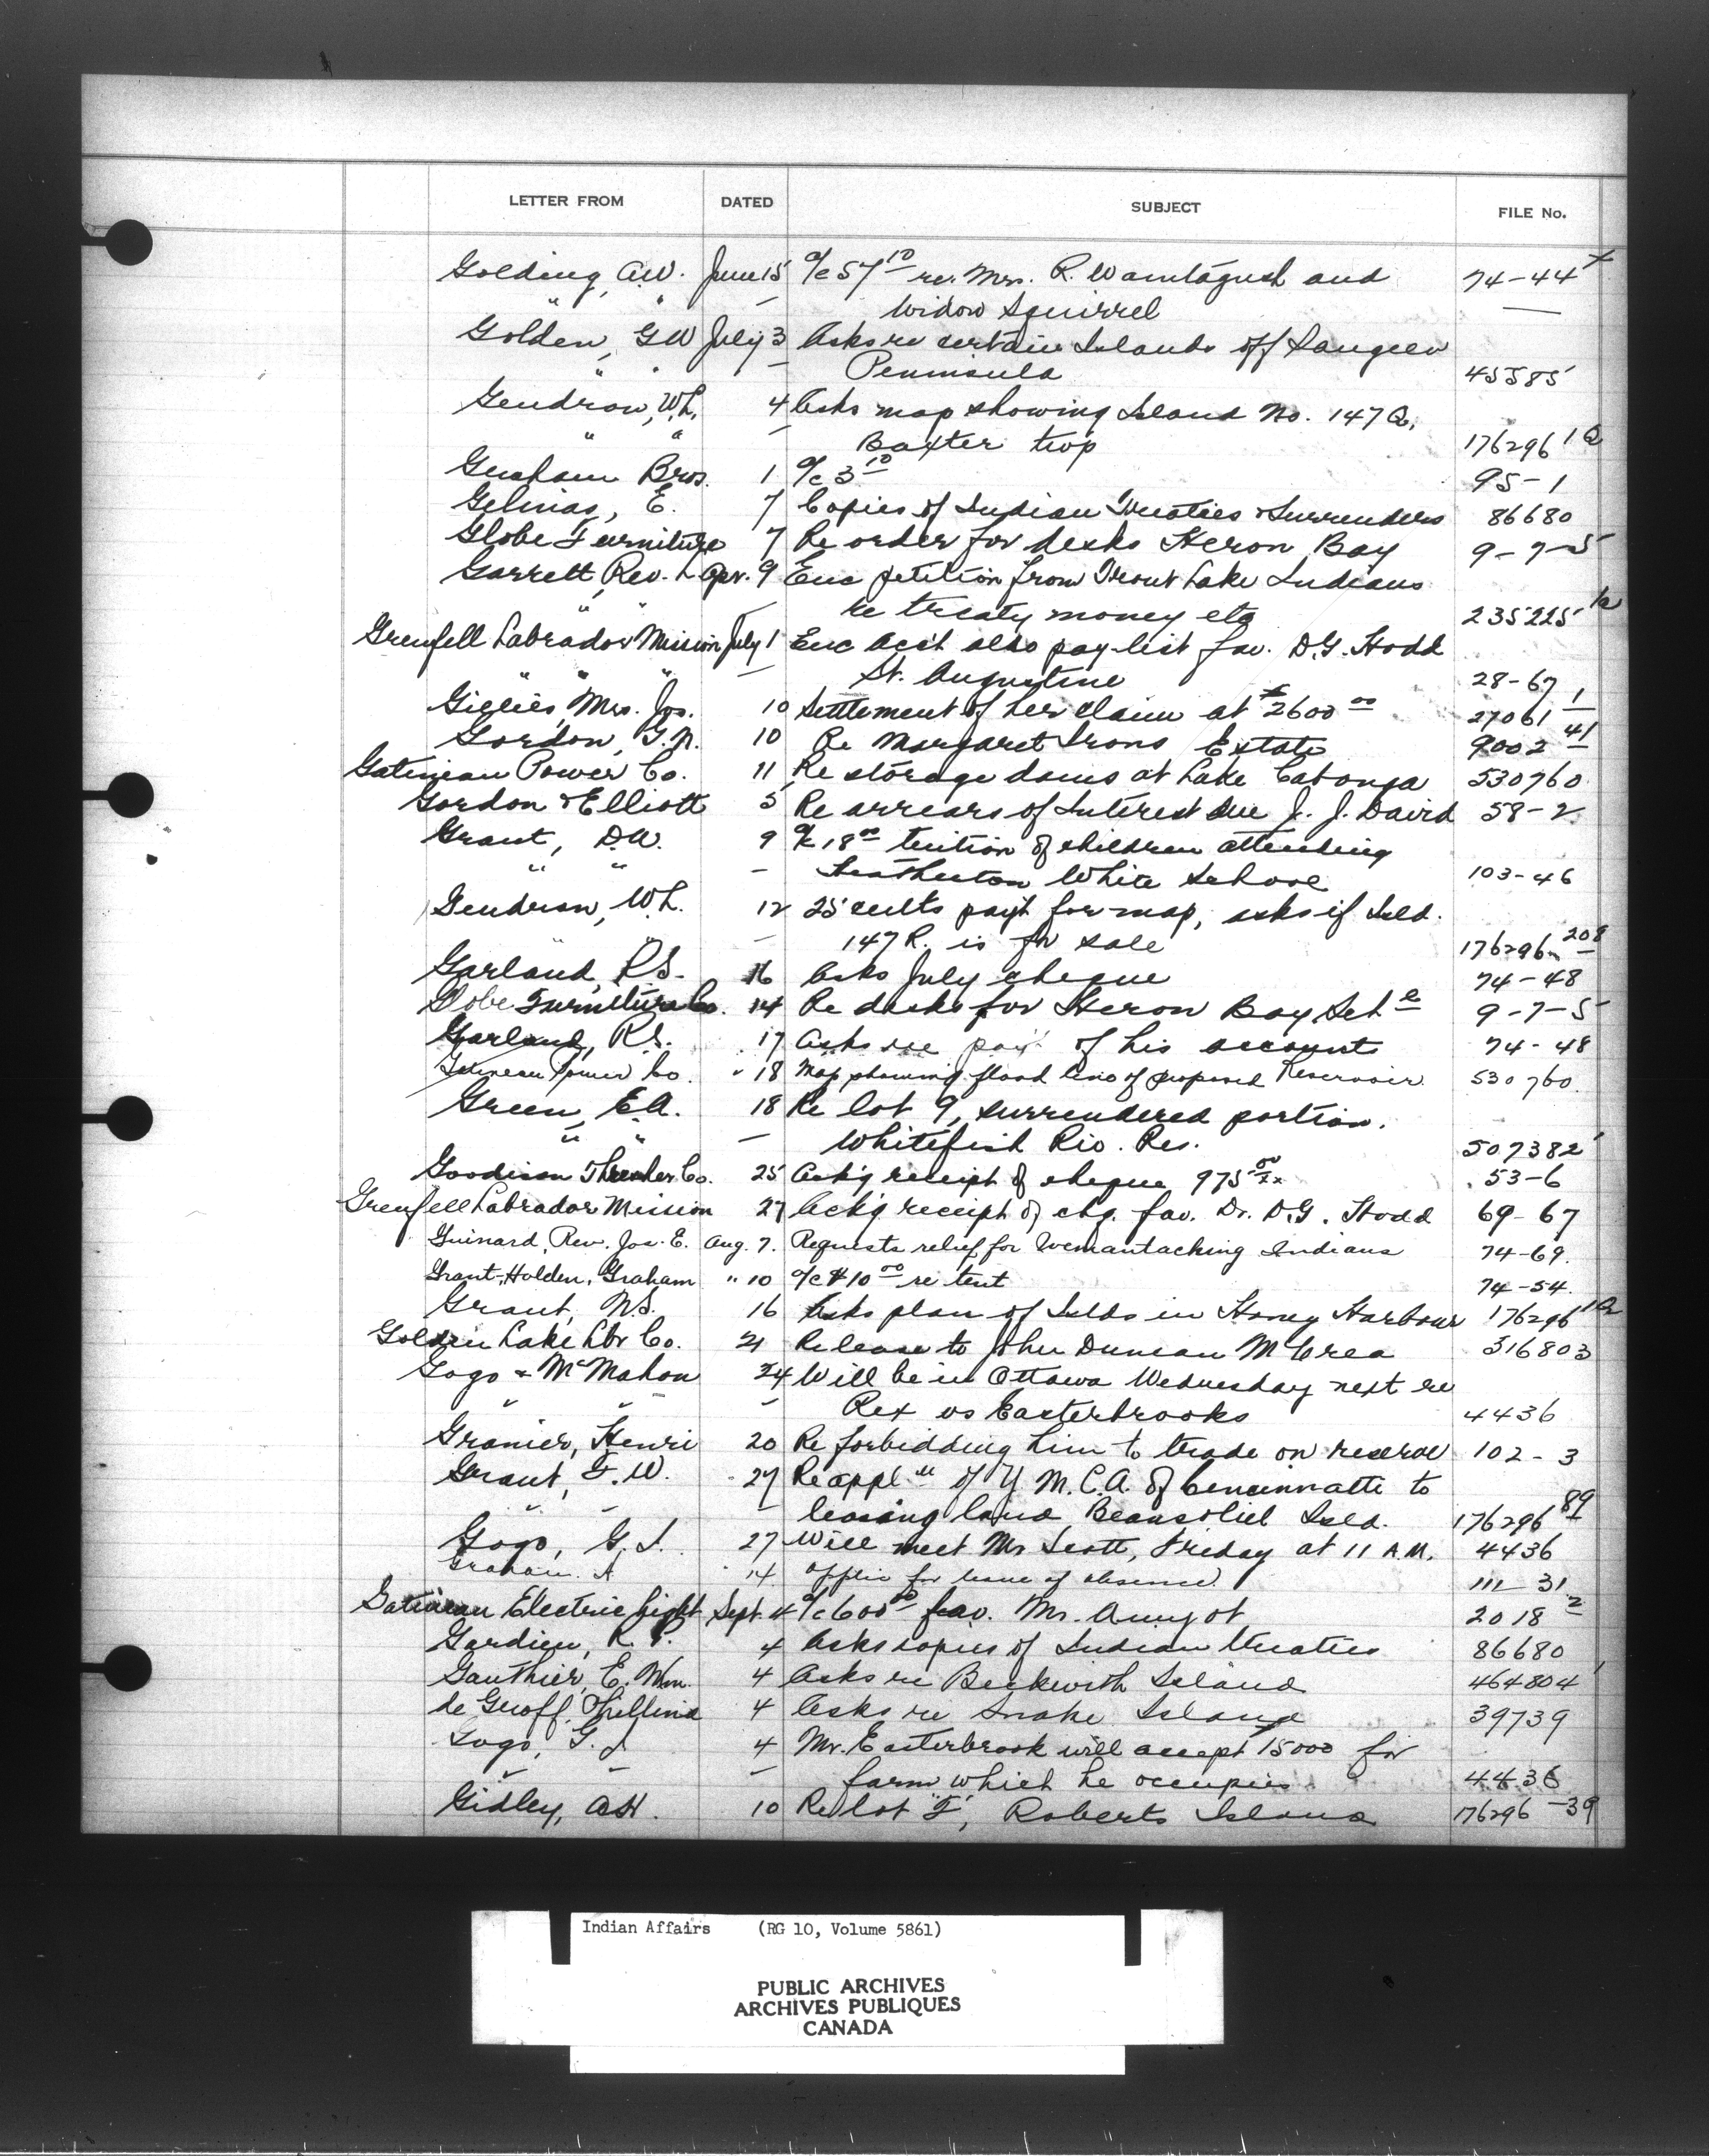 LETTER FROM DATED SUBJECT FILE No.
Golding, A.W. June 15 a/c 57 10 re. Mrs. R. and 74-44 x
" " — Widow Squirrel —
Golden, G W July 3 Asks re certain Islands off Saugeen
" " — Peninsula 45585
Gendron, W.L. 4 Asks map showing Island No. 147 Q,
" " — Baxter twp 176296 1Q
Graham Bros. 1 a/c 3 10 95-1
Gelinas, E. 7 Copies of Indian Treaties & Surrenders 86680
Globe Furniture 7 Re order for desks Heron Bay 9-7-5
Garrett, Rev. L Apr. 9 Enc petition from Trout Lake Indians
" " — re treaty money etc 235225 1a
Grenfell Labrador Mission July 1 Enc acct also pay-list fav. D.G. Hodd
" " " — St. Augustine 28-67
Gillies, Mrs. Jos. 10 Settlement of her claim at $2600 00 27061 1
Gordon, G.N. 10 Re Margaret Irons Estate 9002 41
Gatineau Power Co. 11 Re storage dams at Lake Cabonga 530760
Gordon & Elliott 5 Re arrears of Interest due J. J. David 58-2
Grant, D.W. 9 a/c 18 00 tuition of children attending
" " — White School 103-46
Gendron, W.L. 12 25 cents pay't for map, asks if Isld.
" " — 147 R. is for sale 176296 208
Garland, R.S. 16 Asks July cheque 74-48
Globe Furniture Co. 14 Re desks for Heron Bay Sch l 9-7-5
Garland, R.S. 17 Asks re pay't of his accounts 74-48
Gatineau Power Co. " 18 Map showing flood line of proposed Reservoir. 530760.
Green, E.A. 18 Re lot 9, surrendered portion.
" " — Whitefish Riv. Res. 507382
Goodison Thresher Co. 25 Ack'g receipt of cheque 975 00/xx 53-6
Grenfell Labrador Mission 27 Ack'g receipt of chq. fav. Dr. D.G. Hodd 69-67
Guinard, Rev. Jos. E. Aug. 7. Requests relief for Wemantaching Indians 74-69.
Grant, Holden, Graham " 10 a/c $10 00 re tent 74-54.
Grant, N.S. 16 Asks plan of Islds in Honey Harbour 176296 1Q
Golden Lake Lbr Co. 21 Release to John Duncan McCrea 316803
Gogo & McMahon 24 Will be in Ottawa Wednesday next re
" " — Rex vs Easterbrooks 4436
Granier, Henri 20 Re forbidding him to trade on reserve 102-3
Grant, F.W. 27 Re appl n of Y.M.C.A. of Cincinnatti to
" — leasing land Beausoliel Isld. 176296 89
Gogo, G.I. 27 Will meet Mr Scott, Friday at 11 A.M. 4436
Graham. A 14 Applic for leave of absence. 111-31
Gatineau Electric Light Sept. 4 a/c 600 00 fav. Mr. Amyot 2018 2
Gardien, R.P. 4 Asks copies of Indian treaties 86680
Gauthier, E. Wm. 4 Asks re Beckwith Island 464804
de Geoff, 4 Asks re Snake Island 39739
Gogo, G.I. 4 Mr. Easterbrook will accept 15000 for
" — — farm which he occupies 4436
Gidley, A.H. 10 Re lot "F", Roberts Island 176296-39
Indian Affairs (RG 10, Volume 5861)
PUBLIC ARCHIVES
ARCHIVES PUBLIQUES
CANADA